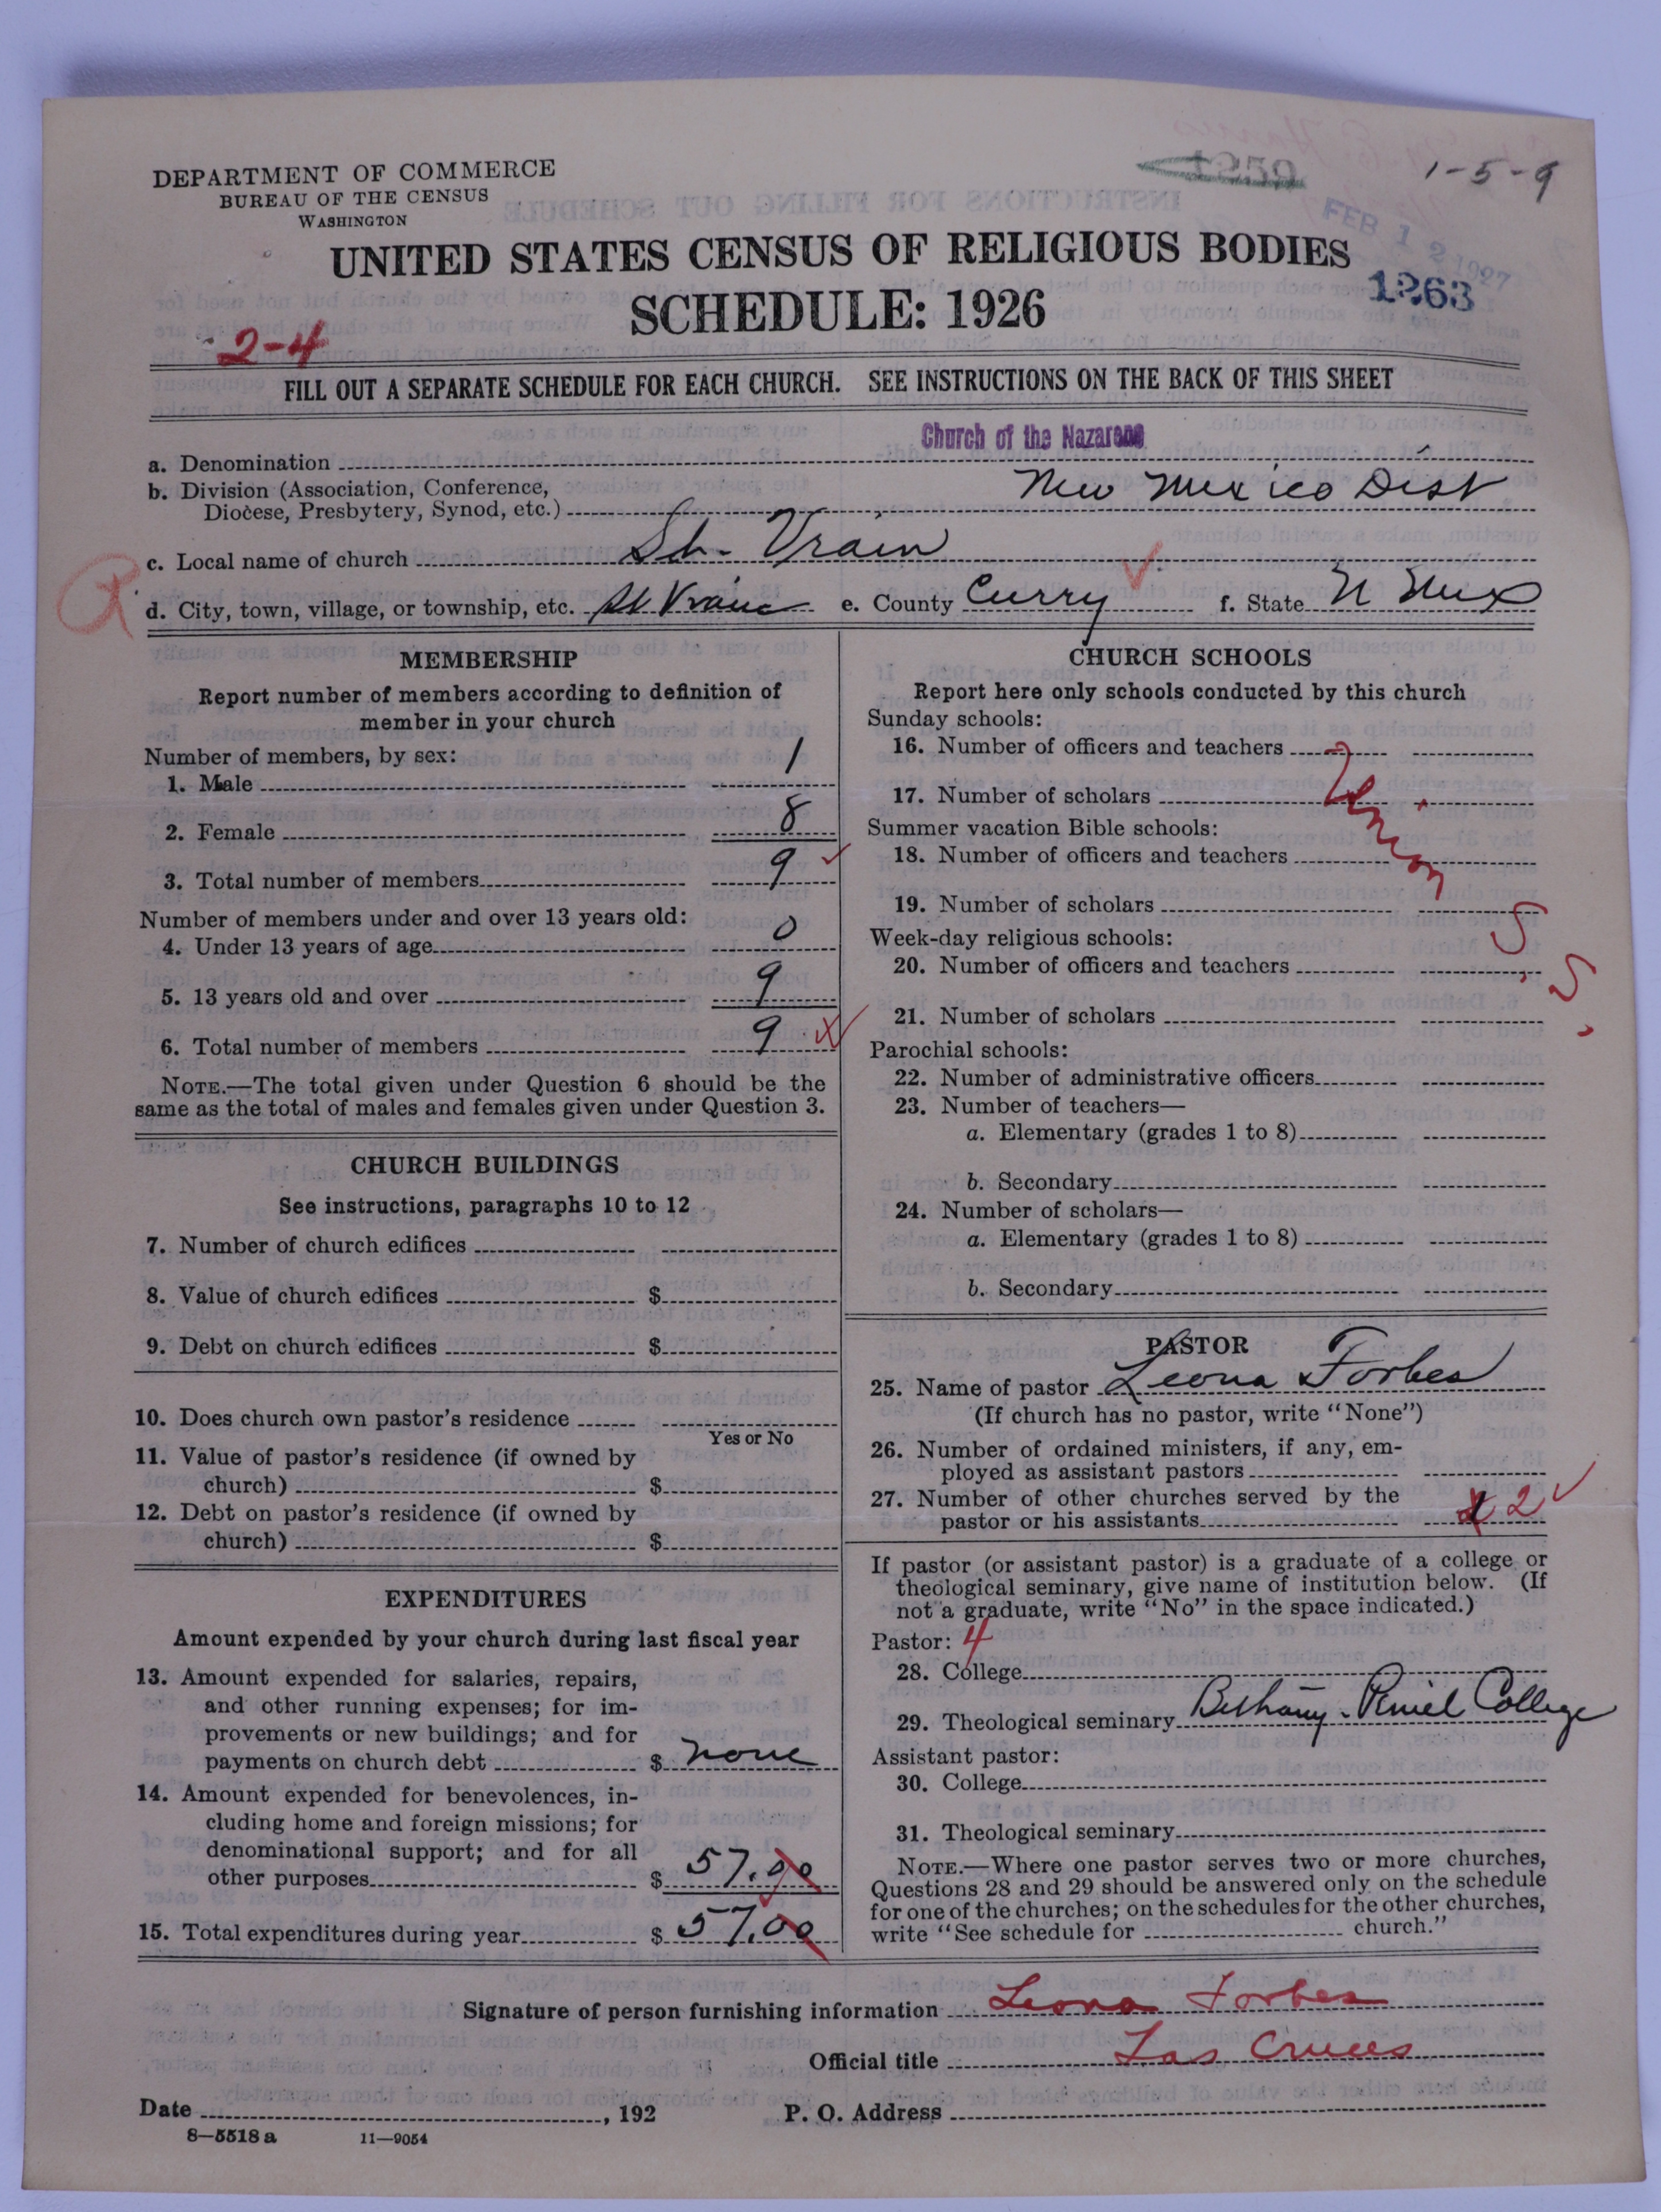 DEPARTMENT OF COMMERCE
BUREAU OF THE CENSUS
WASHINGTON
1-5-9
FEB 12 1927
UNITED STATES CENSUS OF RELIGIOUS BODIES
1263
SCHEDULE: 1926
2-4
FILL OUT A SEPARATE SCHEDULE FOR EACH CHURCH. SEE INSTRUCTIONS ON THE BACK OF THIS SHEET
a. Denomination Church of the Nazarene
b. Division (Association, Conference,
Diocese, Presbytery, Synod, etc.) New Mexico Dist
c. Local name of church St. Vrain
d. City, town, village, or township, etc. St Vrain e. County Curry f. State N Mex
MEMBERSHIP
Report number of members according to definition of
member in your church
Number of members, by sex:
1. Male 1
2. Female 8
3. Total number of members 9
Number of members under and over 13 years old:
4. Under 13 years of age 0
5. 13 years old and over 9
6. Total number of members 9
NOTE.—The total given under Question 6 should be the
same as the total of males and females given under Question 3.
CHURCH BUILDINGS
See instructions, paragraphs 10 to 12
7. Number of church edifices
8. Value of church edifices $
9. Debt on church edifices $
10. Does church own pastor's residence
Yes or No
11. Value of pastor's residence (if owned by
church) $
12. Debt on pastor's residence (if owned by
church) $
EXPENDITURES
Amount expended by your church during last fiscal year
13. Amount expended for salaries, repairs,
and other running expenses; for im-
provements or new buildings; and for
payments on church debt $ none
14. Amount expended for benevolences, in-
cluding home and foreign missions; for
denominational support; and for all
other purposes $ 57.00
15. Total expenditures during year $ 57.00
CHURCH SCHOOLS
Report here only schools conducted by this church
Sunday schools:
16. Number of officers and teachers
17. Number of scholars
Union S. S.
Summer vacation Bible schools:
18. Number of officers and teachers
19. Number of scholars
Week-day religious schools:
20. Number of officers and teachers
21. Number of scholars
Parochial schools:
22. Number of administrative officers
23. Number of teachers—
a. Elementary (grades 1 to 8)
b. Secondary
24. Number of scholars—
a. Elementary (grades 1 to 8)
b. Secondary
PASTOR
25. Name of pastor Leona Forbes
(If church has no pastor, write "None")
26. Number of ordained ministers, if any, em-
ployed as assistant pastors
27. Number of other churches served by the
pastor or his assistants 2
If pastor (or assistant pastor) is a graduate of a college or
theological seminary, give name of institution below. (If
not a graduate, write "No" in the space indicated.)
Pastor: 4
28. College
29. Theological seminary Bethany-Peniel College
Assistant pastor:
30. College
31. Theological seminary
NOTE.—Where one pastor serves two or more churches,
Questions 28 and 29 should be answered only on the schedule
for one of the churches; on the schedules for the other churches,
write "See schedule for church."
Signature of person furnishing information Leona Forbes
Official title Las Cruces
Date , 192 P. O. Address
8—5518 a 11—9054